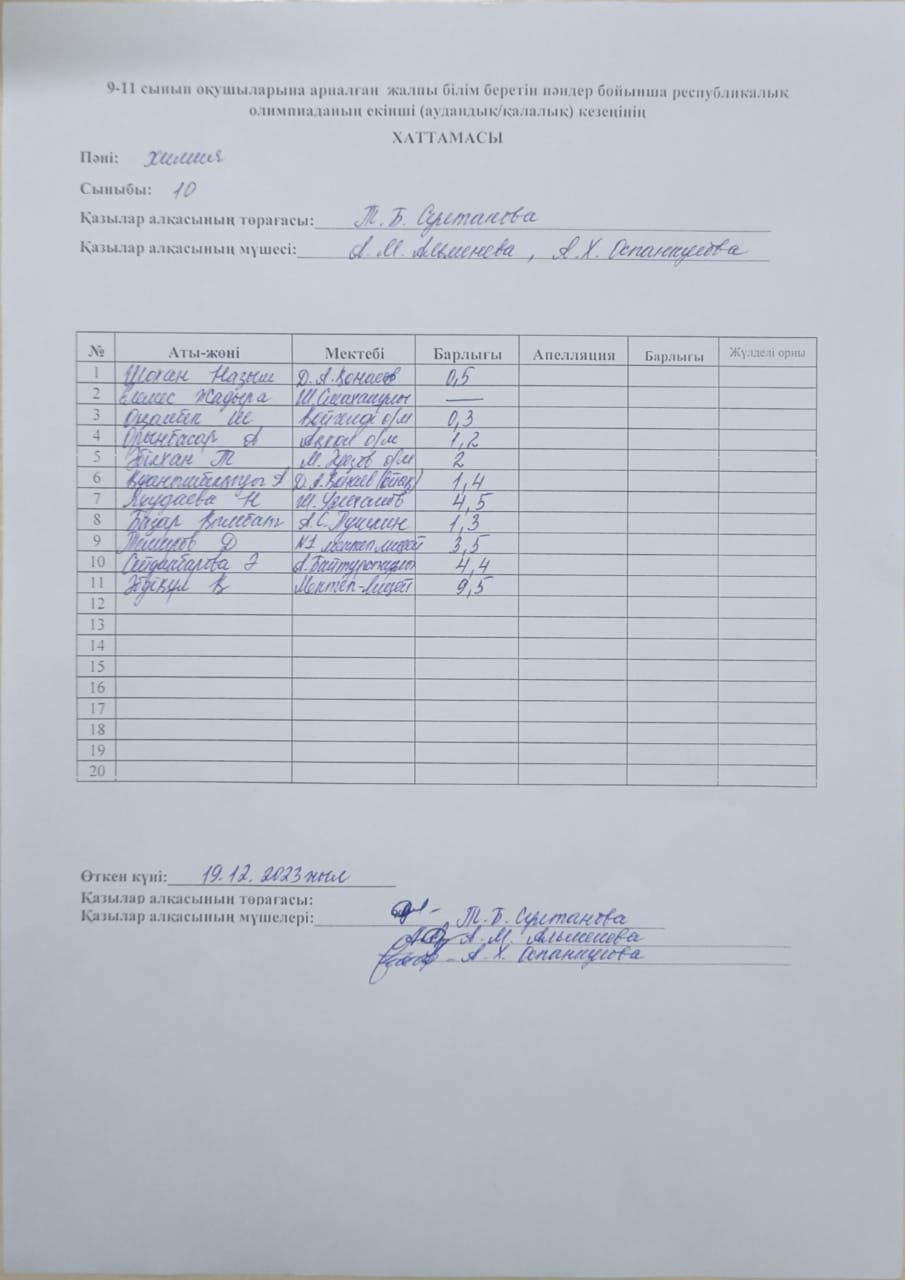 9-11 сынып оқушыларына арналған жалпы білім беретін пәндер бойынша республикалық
олимпиаданың екінші (аудандық/қалалық) кезеңінің
ХАТТАМАСЫ
Пәні: химия
Сыныбы: 10
Қазылар алқасының төрағасы: Т. Б. Султанова
Қазылар алқасының мүшесі: А. М. Альменева, А. Х. Оспанкулова
№ Аты-жөні Мектебі Барлығы Апелляция Барлығы Жүлделі орны
1 Шохан Назым Д. А. Қонаев 0,5
2 Елемес Жадыра Ш. —
3 Ш о/м 0,3
4 Орынбасар А Ақкөл о/м 1,2
5 Әбілхан Т М. Әуезов о/м 2
6 А Д. А. Қонаев 1,4
7 Н Ш. Уәлиханов 4,5
8 Базар Қымбат А. С. Пушкин 1,3
9 Темиров Д №1 мектеп лицей 3,5
10 Сейдакбарова Ә А. Байтұрсынұлы 4,4
11 Әбдіқұл Қ Мектеп-лицей 9,5
12
13
14
15
16
17
18
19
20
Өткен күні: 19.12.2023 жыл
Қазылар алқасының төрағасы:
Қазылар алқасының мүшелері: - Т. Б. Султанова
А. М. Альменева
- А. Х. Оспанкулова